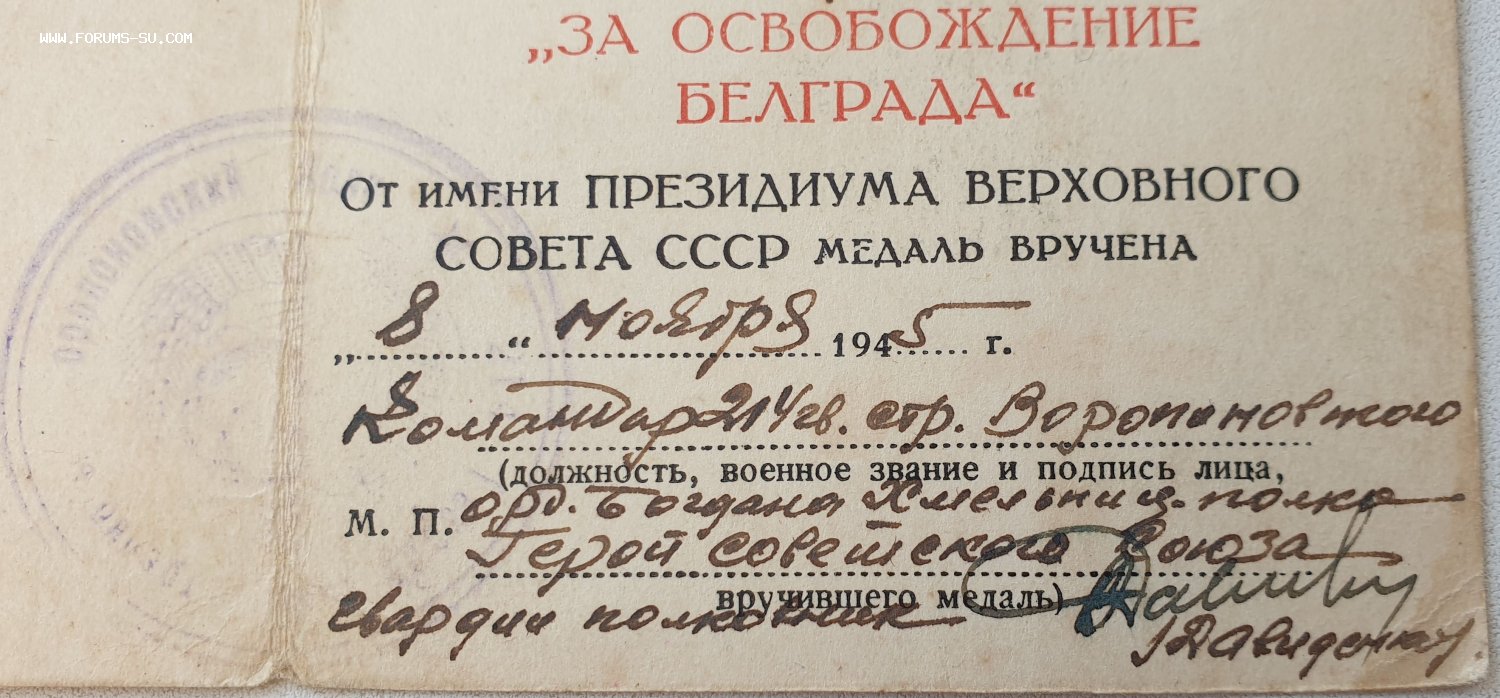 WWW.FORUMS-SU.COM
„ЗА ОСВОБОЖДЕНИЕ
БЕЛГРАДА“
От имени ПРЕЗИДИУМА ВЕРХОВНОГО
СОВЕТА СССР МЕДАЛЬ ВРУЧЕНА
„8“ ноября 1945 г.
Командир 214 гв. стр. Воропоновского
(должность, военное звание и подпись лица,
М. П. орд. Богдана Хмельниц. полка
Герой Советского Союза
вручившего медаль)
гвардии полковник
/Давиденко/